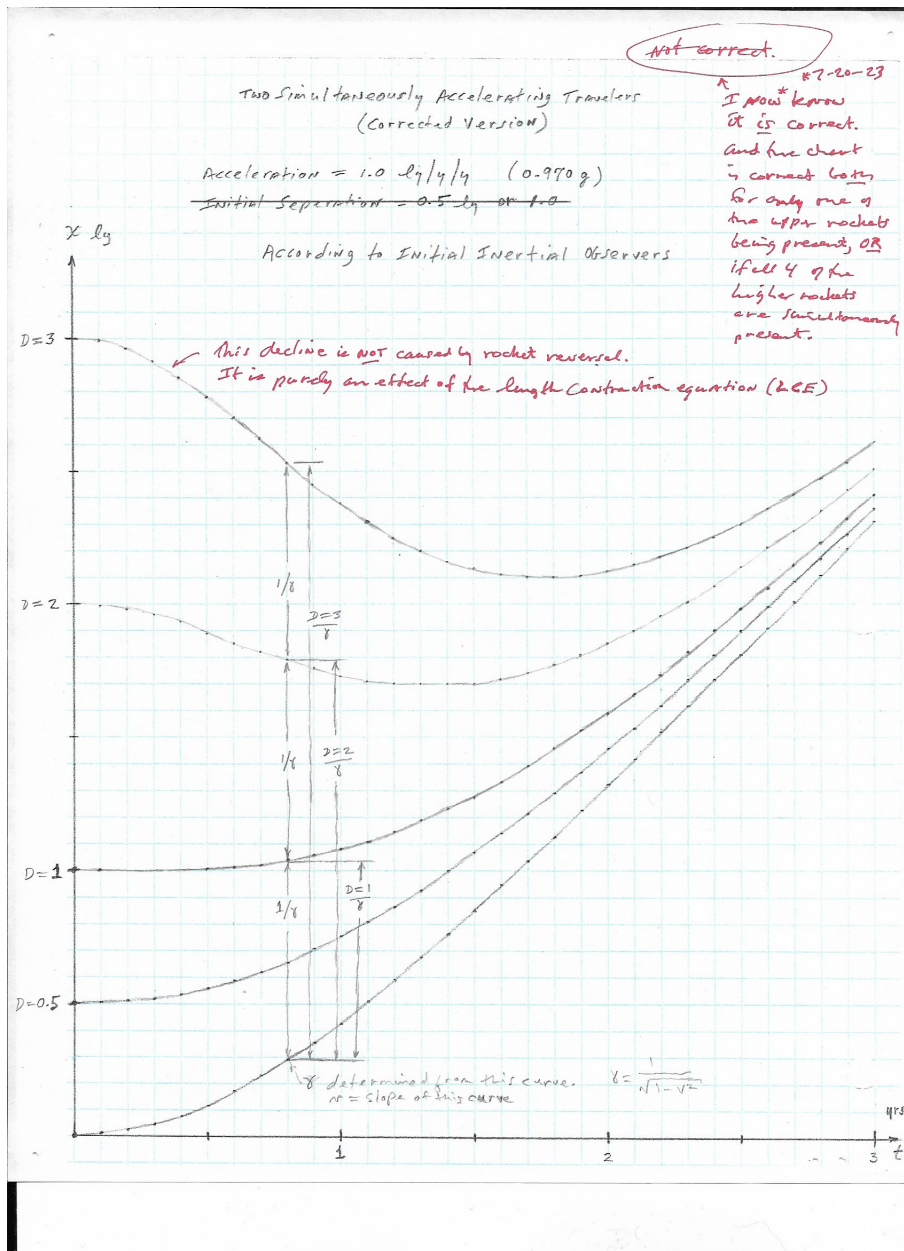 Not correct.
*7-20-23
I now* know
it is correct.
and the chart
is correct both
for only one of
the upper rockets
being present, OR
if all 4 of the
higher rockets
are simultaneously
present.
Two Simultaneously Accelerating Travelers
(Corrected Version)
Acceleration = 1.0 ly/y/y (0.970g)
Initial Seperation = 0.5 ly or 1.0
According to Initial Inertial Observers
x ly
D=3
This decline is NOT caused by rocket reversal.
It is purely an effect of the length contraction equation (LCE)
1/γ
D=3
γ
D=2
1/γ
D=2
γ
D=1
1/γ
D=1
γ
D=0.5
γ determined from this curve.
v = slope of this curve
γ = 1/√1-v²
yrs
1
2
3
t